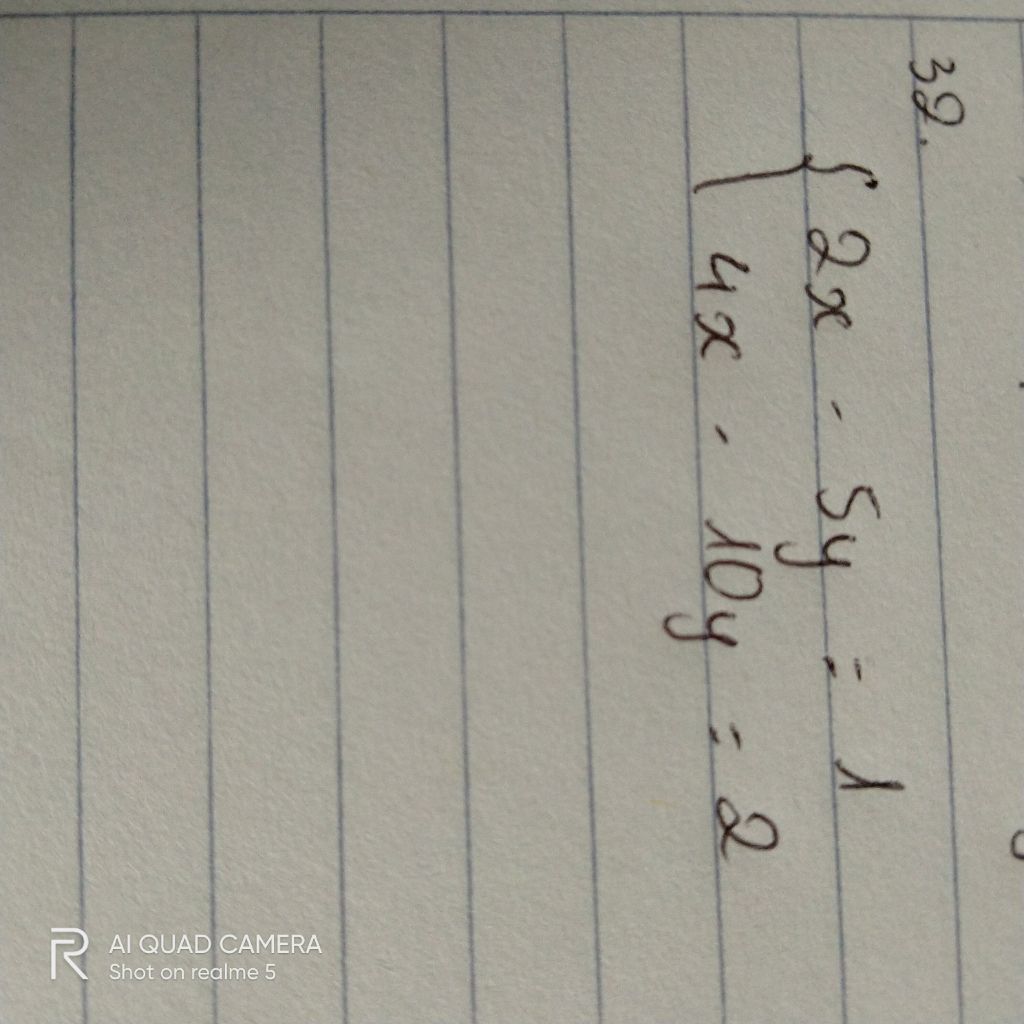 39.
{ 2x - 5y = 1
4x - 10y = 2
AI QUAD CAMERA
Shot on realme 5